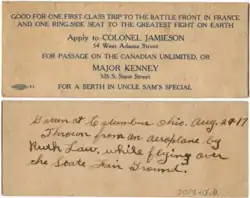 GOOD FOR ONE FIRST CLASS TRIP TO THE BATTLE FRONT IN FRANCE
AND ONE RING SIDE SEAT TO THE GREATEST FIGHT ON EARTH
Apply to COLONEL JAMIESON
54 West Adams Street
FOR PASSAGE ON THE CANADIAN UNLIMITED, OR
MAJOR KENNEY
528 S. State Street
FOR A BERTH IN UNCLE SAM'S SPECIAL
Given at Columbus Ohio. Aug 24 17
Thrown from an aeroplane by
Ruth Law, while flying over
the State Fair Ground.